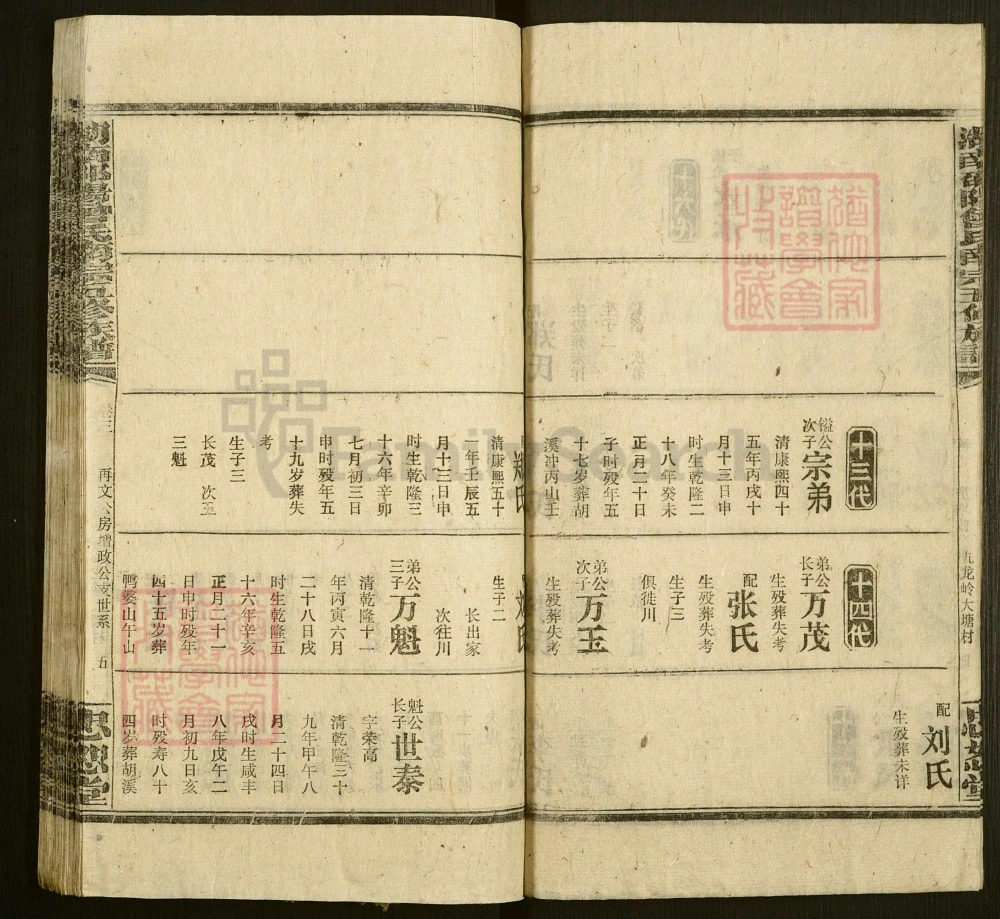 十三代
镒公
次子
宗弟
清康熙四十
五年丙戌十
月十三日申
时生乾隆二
十八年癸未
正月二十日
子时殁年五
十七岁葬胡
溪冲丙山壬
郑氏
清康熙五十
一年壬辰五
月十三日申
时生乾隆三
十六年辛卯
七月初三日
申时殁年五
十九岁葬失
考
生子三
长茂 次玉
三魁
十四代
弟公
长子
万茂
生殁葬失考
配
张氏
生殁葬失考
生子三
俱徙川
弟公
次子
万玉
生殁葬失考
生子二
长出家
次往川
弟公
三子
万魁
清乾隆十一
年丙寅六月
二十八日戌
时生乾隆五
十六年辛亥
正月二十一
日申时殁年
四十五岁葬
鸭婆山午山
配
刘氏
生殁葬未详
魁公
长子
世泰
字荣高
清乾隆三十
九年甲午八
月二十四日
戌时生咸丰
八年戊午二
月初九日亥
时殁寿八十
四岁葬胡溪
九龙岭大塘村
卷三
再文公房增政公支世系
五
FamilySearch